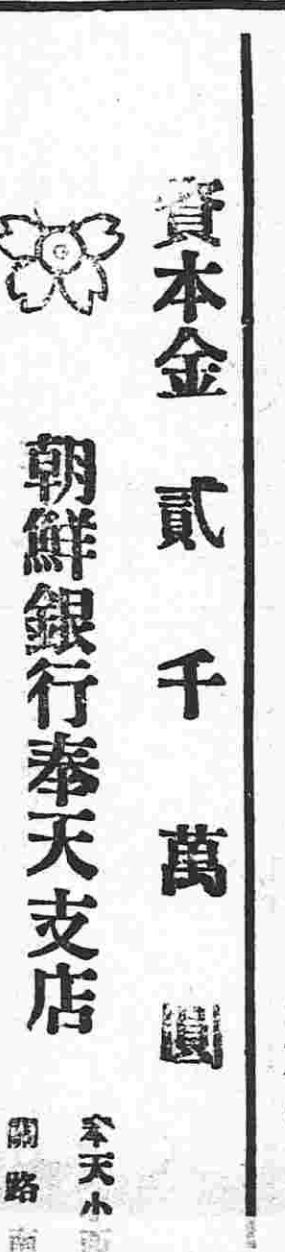 資本金貳千萬圓
朝鮮銀行奉天支店
奉天小
關路